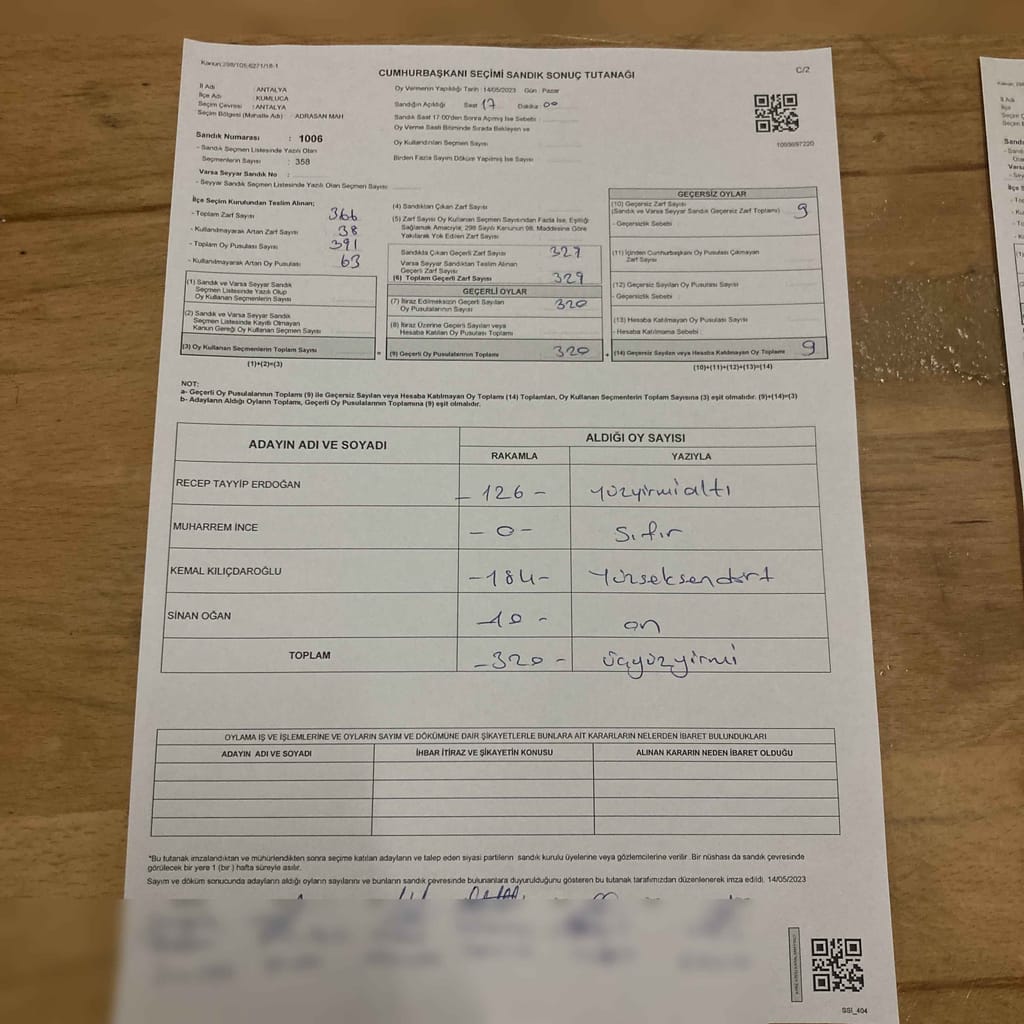 Kanun:298/105-6271/18-1
CUMHURBAŞKANI SEÇİMİ SANDIK SONUÇ TUTANAĞI
C/2
İl Adı : ANTALYA
İlçe Adı : KUMLUCA
Seçim Çevresi : ANTALYA
Seçim Bölgesi (Mahalle Adı) : ADRASAN MAH
Sandık Numarası : 1006
- Sandık Seçmen Listesinde Yazılı Olan
Seçmenlerin Sayısı : 358
Varsa Seyyar Sandık No :
- Seyyar Sandık Seçmen Listesinde Yazılı Olan Seçmen Sayısı
Oy Vermenin Yapıldığı Tarih : 14/05/2023 Gün : Pazar
Sandığın Açıldığı Saat 17 Dakika 00
Sandık Saat 17:00'den Sonra Açılmış İse Sebebi :
Oy Verme Saati Bitiminde Sırada Bekleyen ve
Oy Kullandırılan Seçmen Sayısı
Birden Fazla Sayım Döküm Yapılmış İse Sayısı
1009697220
İlçe Seçim Kurulundan Teslim Alınan;
- Toplam Zarf Sayısı 366
- Kullanılmayarak Artan Zarf Sayısı 38
- Toplam Oy Pusulası Sayısı 391
- Kullanılmayarak Artan Oy Pusulası 63
(1) Sandık ve Varsa Seyyar Sandık
Seçmen Listesinde Yazılı Olup
Oy Kullanan Seçmenlerin Sayısı
(2) Sandık ve Varsa Seyyar Sandık
Seçmen Listesinde Kayıtlı Olmayan
Kanun Gereği Oy Kullanan Seçmen Sayısı
(3) Oy Kullanan Seçmenlerin Toplam Sayısı
(1)+(2)=(3)
(4) Sandıktan Çıkan Zarf Sayısı
(5) Zarf Sayısı Oy Kullanan Seçmen Sayısından Fazla İse, Eşitliği
Sağlamak Amacıyla; 298 Sayılı Kanunun 98. Maddesine Göre
Yakılarak Yok Edilen Zarf Sayısı
Sandıkta Çıkan Geçerli Zarf Sayısı 329
Varsa Seyyar Sandıktan Teslim Alınan
Geçerli Zarf Sayısı
(6) Toplam Geçerli Zarf Sayısı 329
GEÇERLİ OYLAR
(7) İtiraz Edilmeksizin Geçerli Sayılan 320
Oy Pusulalarının Sayısı
(8) İtiraz Üzerine Geçerli Sayılan veya
Hesaba Katılan Oy Pusulası Toplamı
(9) Geçerli Oy Pusulalarının Toplamı 320
GEÇERSİZ OYLAR
(10) Geçersiz Zarf Sayısı 9
(Sandık ve Varsa Seyyar Sandık Geçersiz Zarf Toplamı)
- Geçersizlik Sebebi
(11) İçinden Cumhurbaşkanı Oy Pusulası Çıkmayan
Zarf Sayısı
(12) Geçersiz Sayılan Oy Pusulası Sayısı
- Geçersizlik Sebebi
(13) Hesaba Katılmayan Oy Pusulası Sayısı
- Hesaba Katılmama Sebebi :
(14) Geçersiz Sayılan veya Hesaba Katılmayan Oy Toplamı 9
(10)+(11)+(12)+(13)=(14)
NOT:
a- Geçerli Oy Pusulalarının Toplamı (9) ile Geçersiz Sayılan veya Hesaba Katılmayan Oy Toplamı (14) Toplamları, Oy Kullanan Seçmenlerin Toplam Sayısına (3) eşit olmalıdır. (9)+(14)=(3)
b- Adayların Aldığı Oyların Toplamı, Geçerli Oy Pusulalarının Toplamına (9) eşit olmalıdır.
ADAYIN ADI VE SOYADI ALDIĞI OY SAYISI
RAKAMLA YAZIYLA
RECEP TAYYİP ERDOĞAN - 126 - yüzyirmialtı
MUHARREM İNCE - 0 - Sıfır
KEMAL KILIÇDAROĞLU - 184 - Yüzseksendört
SİNAN OĞAN - 10 - on
TOPLAM - 320 - üçyüzyirmi
OYLAMA İŞ VE İŞLEMLERİNE VE OYLARIN SAYIM VE DÖKÜMÜNE DAİR ŞİKAYETLERLE BUNLARA AİT KARARLARIN NELERDEN İBARET BULUNDUKLARI
ADAYIN ADI VE SOYADI İHBAR İTİRAZ VE ŞİKAYETİN KONUSU ALINAN KARARIN NEDEN İBARET OLDUĞU
*Bu tutanak imzalandıktan ve mühürlendikten sonra seçime katılan adayların ve talep eden siyasi partilerin sandık kurulu üyelerine veya gözlemcilerine verilir. Bir nüshası da sandık çevresinde
görülecek bir yere 1 (bir) hafta süreyle asılır.
Sayım ve döküm sonucunda adayların aldığı oyların sayılarını ve bunların sandık çevresinde bulunanlara duyurulduğunu gösteren bu tutanak tarafımızdan düzenlenerek imza edildi. 14/05/2023
SSI_404